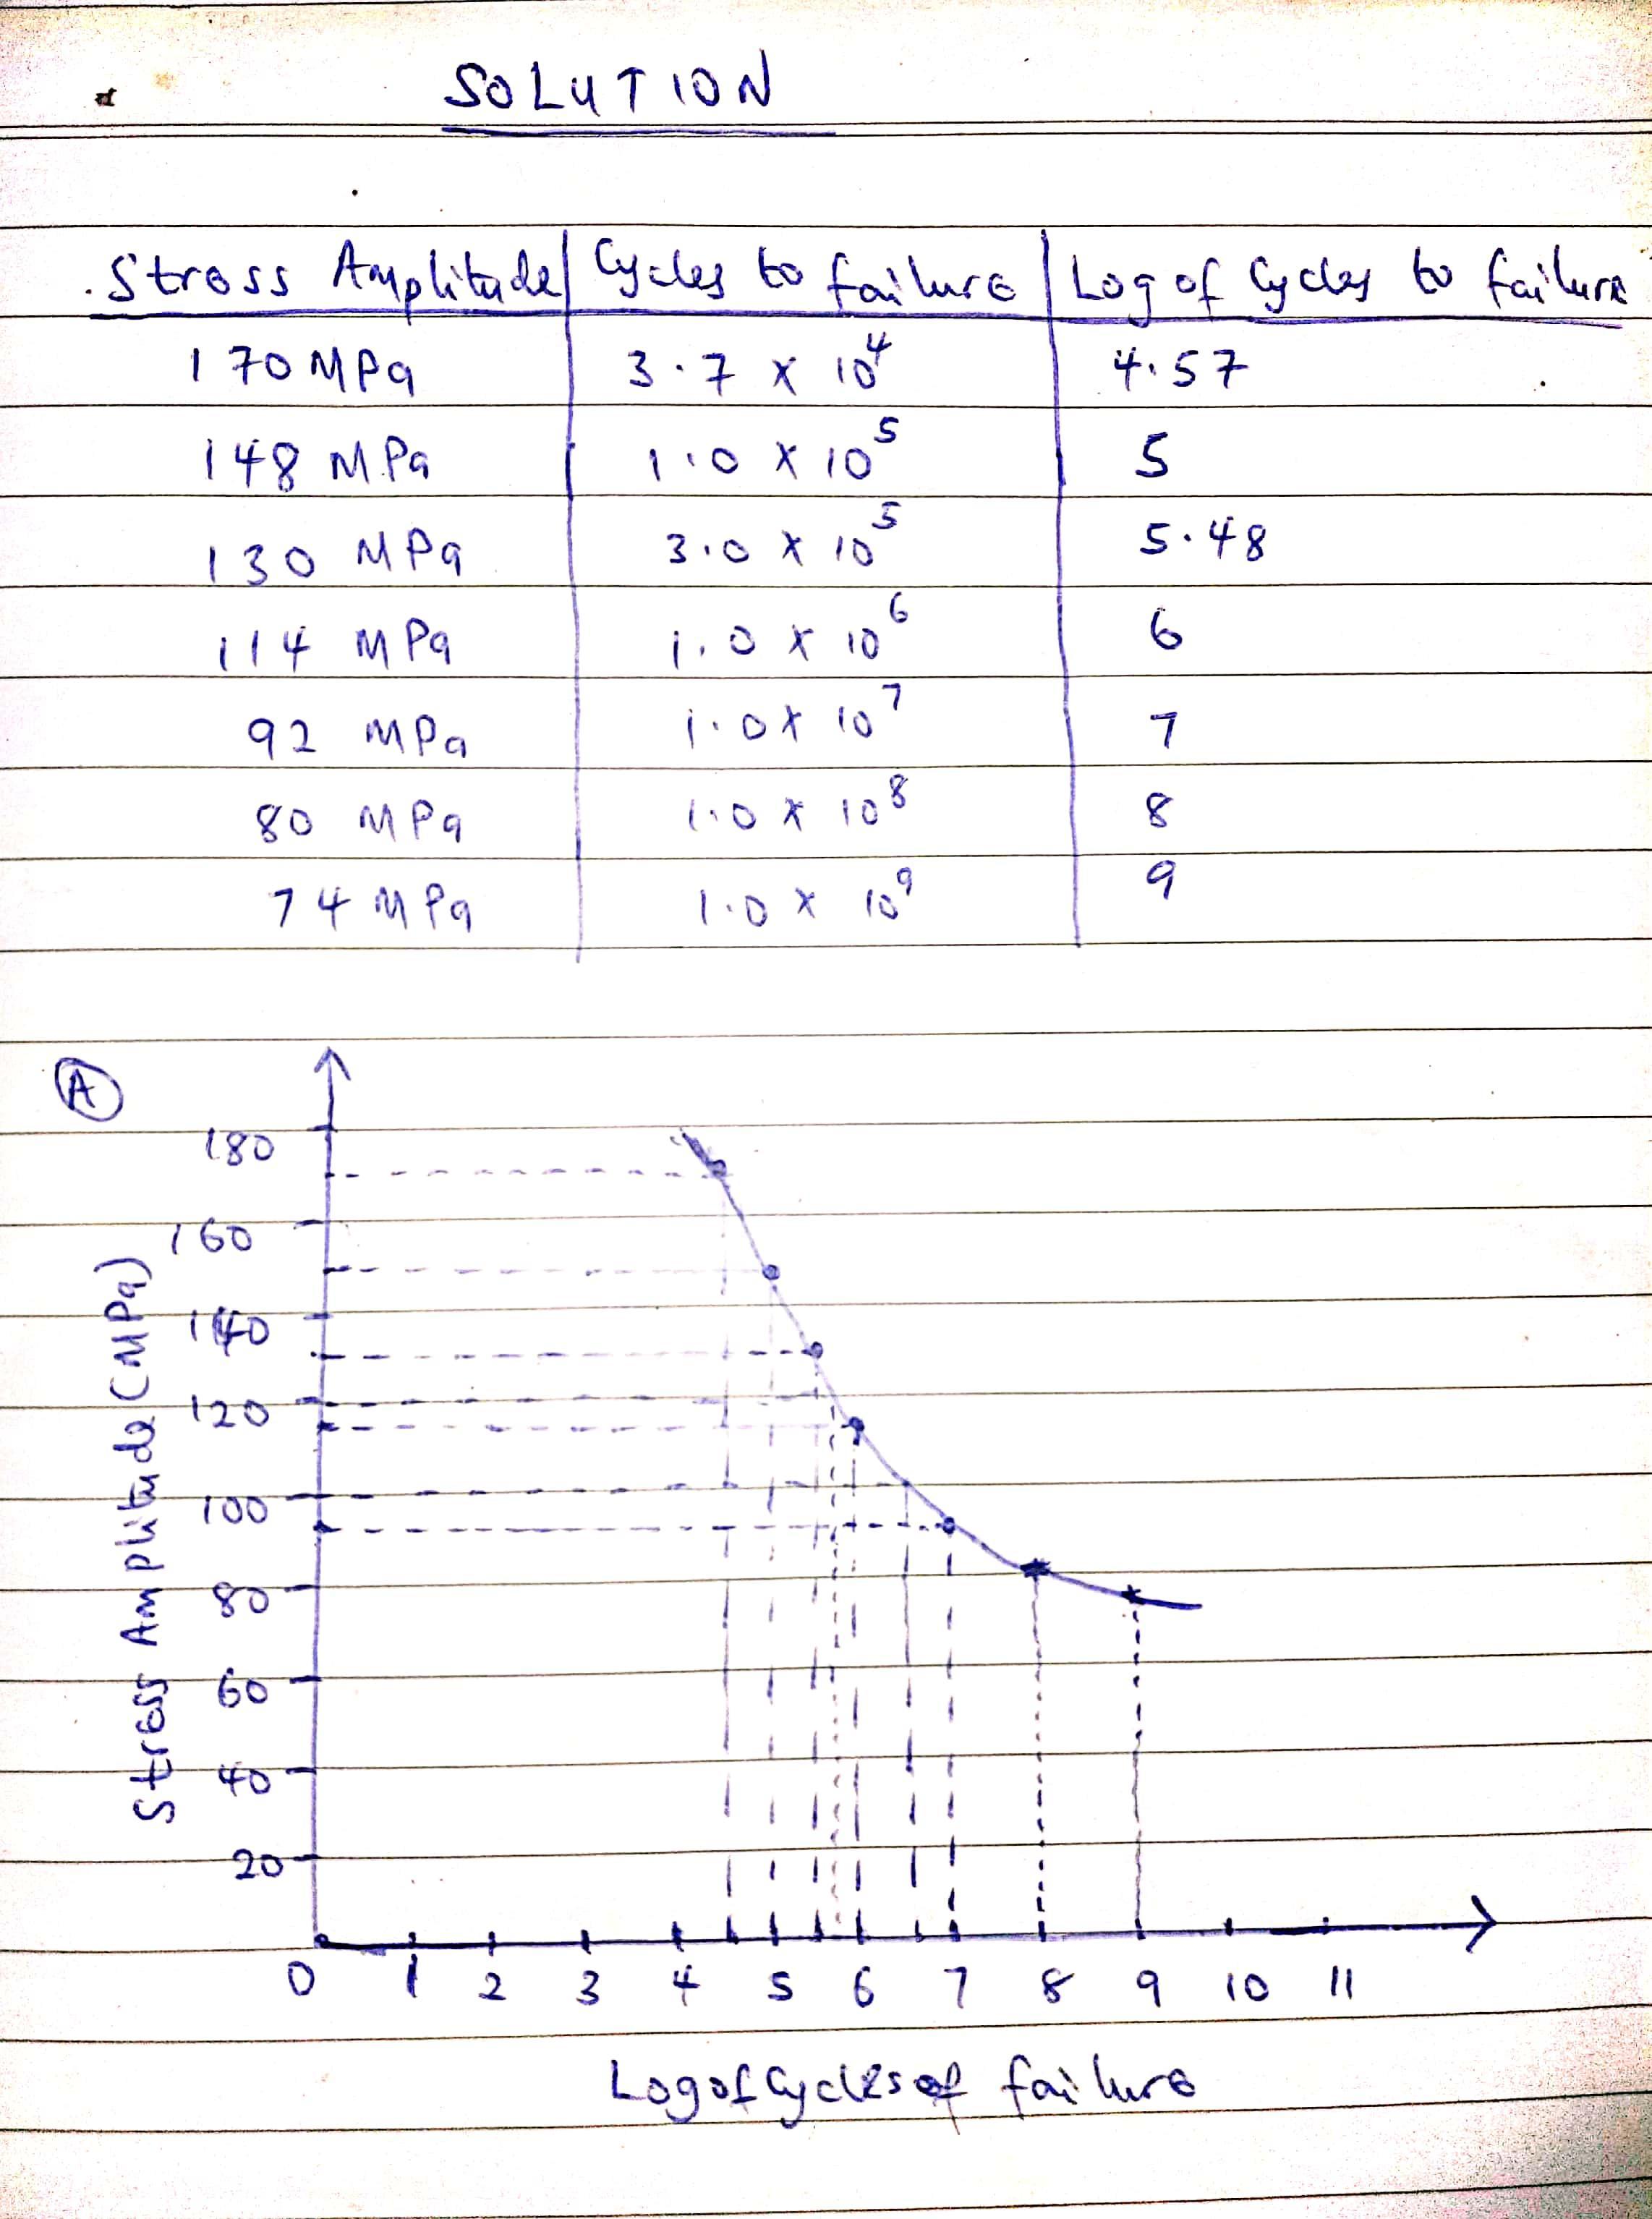 SOLUTION
Stress Amplitude | Cycles to failure | Log of Cycles to failure
170 MPa 3.7 x 10⁴ 4.57
148 MPa 1.0 x 10⁵ 5
130 MPa 3.0 x 10⁵ 5.48
114 MPa 1.0 x 10⁶ 6
92 MPa 1.0 x 10⁷ 7
80 MPa 1.0 x 10⁸ 8
74 MPa 1.0 x 10⁹ 9
A
Stress Amplitude (MPa)
180
160
140
120
100
80
60
40
20
0 1 2 3 4 5 6 7 8 9 10 11
Log of Cycles of failure